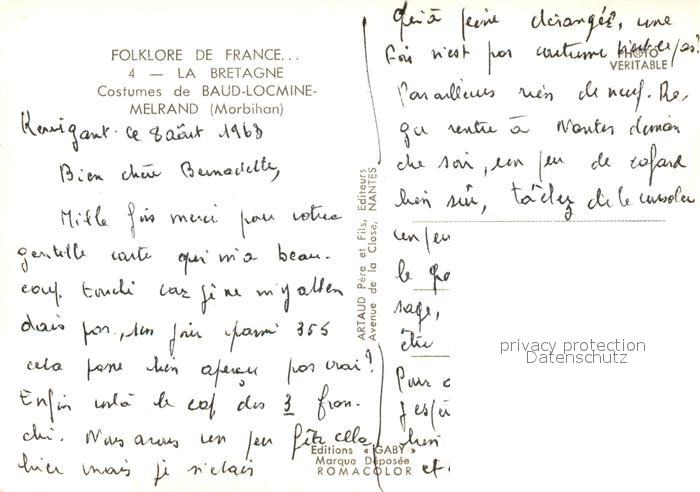 FOLKLORE DE FRANCE...
4 — LA BRETAGNE
Costumes de BAUD-LOCMINE-
MELRAND (Morbihan)
ce 8 août 1963
Bien chère Bernadette,
Mille fois merci pour votre
gentille carte qui m'a beau-
coup touché car je ne m'y atten
dais pas, un jour parmi 365
cela passe bien aperçu pas vrai?
Enfin voilà le cap des 3 fran-
chi. Nous avons un peu fêté cela
hier mais je n'étais
ARTAUD Père et Fils, Editeurs
Avenue de la Close, NANTES
Editions « GABY »
Marque Déposée
ROMACOLOR
PHOTO
VERITABLE
qu'à peine dérangée, une
fois n'est pas coutume n'est-ce pas?
Par ailleurs rien de neuf. Re-
gu rentre à Nantes diman
che soir, un peu de cafard
bien sûr, tâchez de le consoler
un peu
le
sage,
être
Pour
J'espè
bien
et
privacy protection
Datenschutz